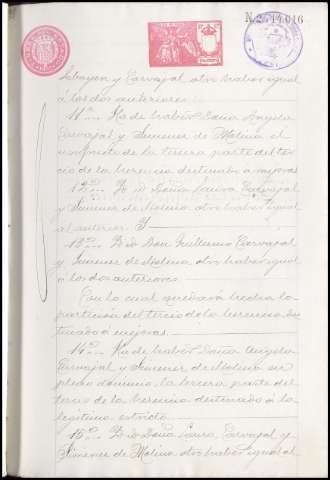 Lbuyen y Carvajal otro haber igual
á los dos anteriores.
11º... Ha de haber Doña Angela
Carvajal y Jimenez de Molina el
importe de la tercera parte del ter-
cio de la herencia destinado a mejoras
12º... Id id Doña Laura Carvajal
y Jimenez de Molina otro haber igual
al anterior. Y
13º... Id id Don Guillermo Carvajal
y Jimenez de Molina otro haber igual
á los dos anteriores.
Con lo cual quedará hecha la
particion del tercio de la herencia des-
tinado á mejoras.
14º... Ha de haber Doña Angela
Carvajal y Jimenez de Molina en
pleno dominio la tercera parte del
tercio de la herencia destinado á la
legitima estricta.
15º... Id id Doña Laura Carvajal y
Jimenez de Molina otro haber igual al